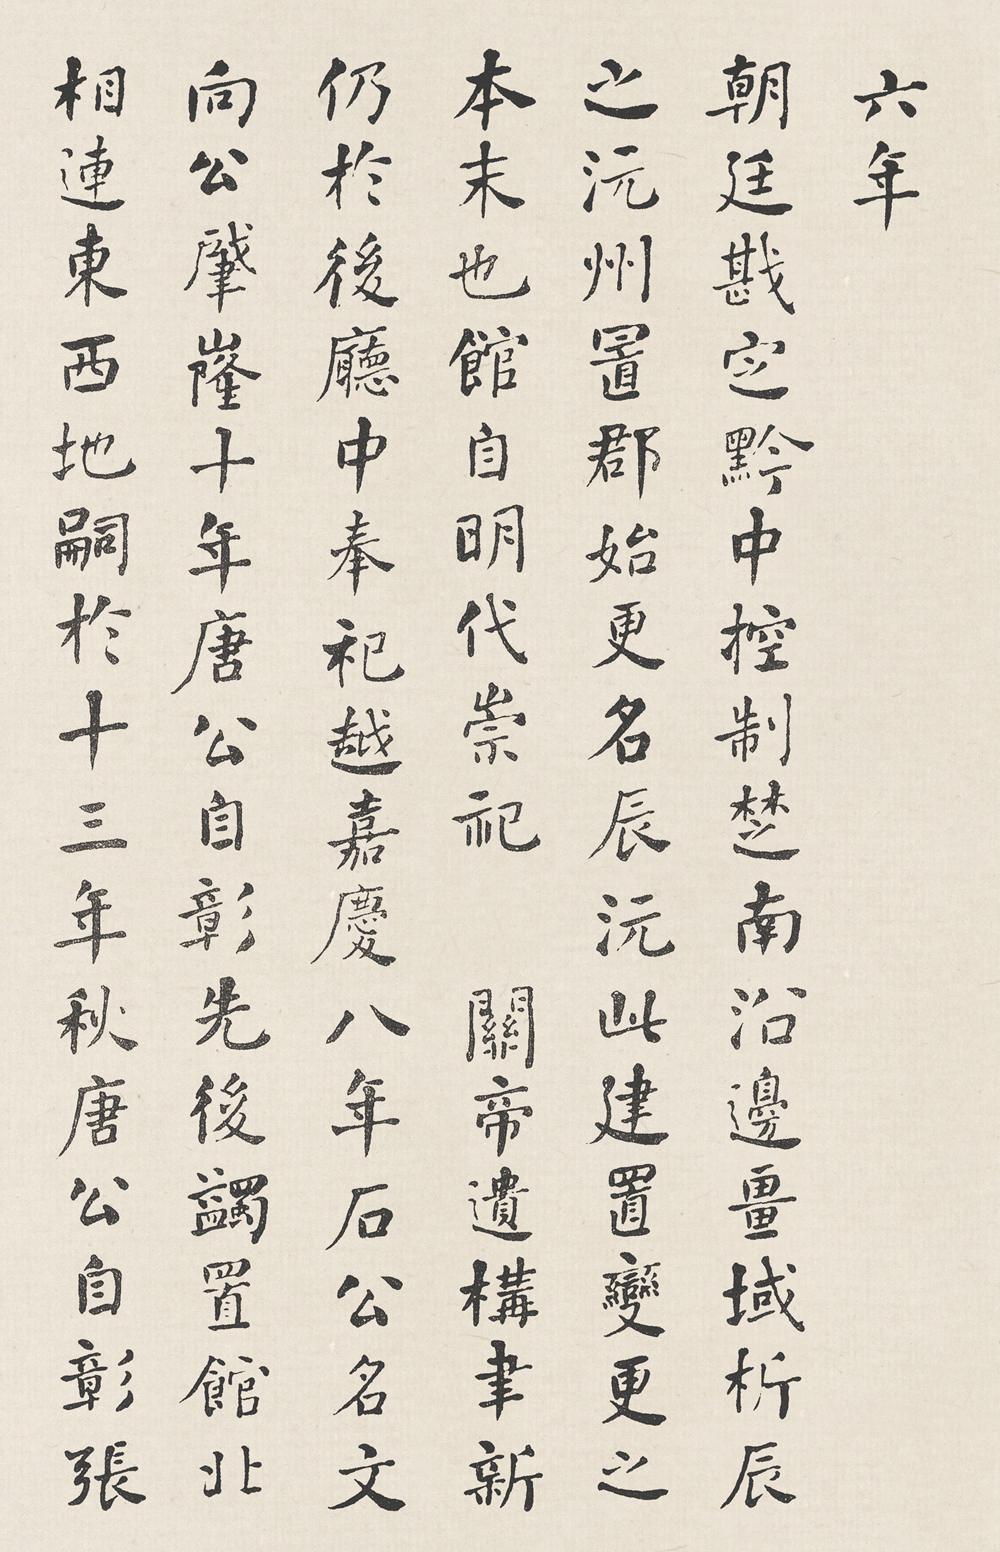 六年
朝廷戡定黔中控制楚南沿邊畺域析辰
之沅州置郡始更名辰沅此建置變更之
本末也館自明代崇祀 關帝遺構聿新
仍於後廳中奉祀越嘉慶八年石公名文
向公肇嶐十年唐公自彰先後蠲置館北
相連東西地嗣於十三年秋唐公自彰張